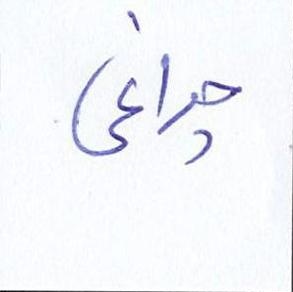 چراغی